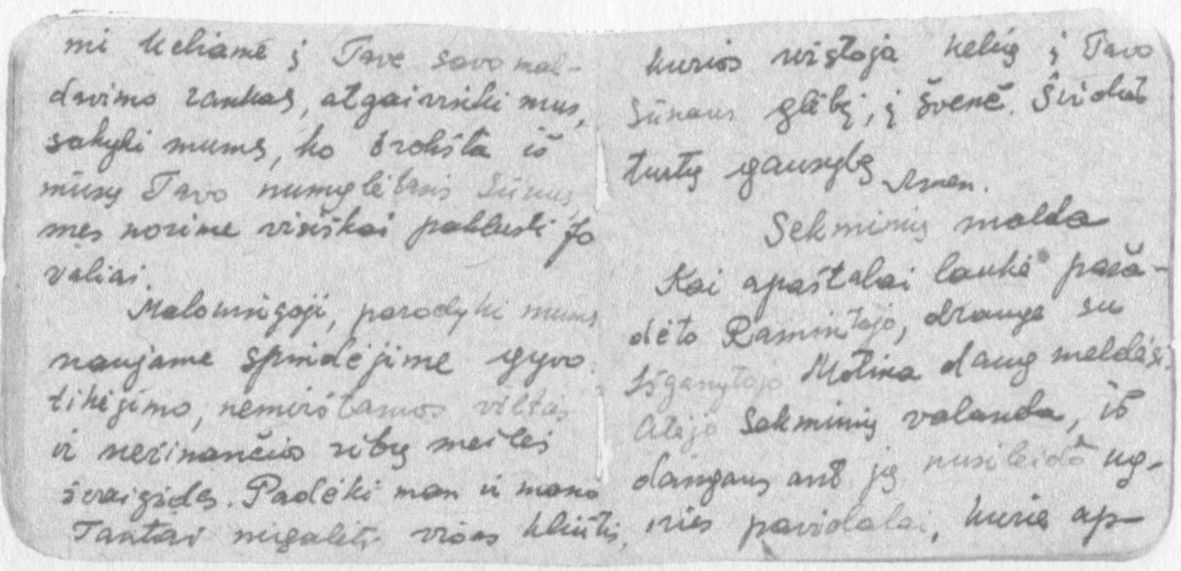 mi keliame į Tave savo mal-
davimo rankas, atgaivinki mus,
sakyki mums, ko trokšta iš
mūsų Tavo numylėtasis Sūnus,
mes norime visiškai paklusti Jo
valiai.
Maloningoji, parodyki mums
naujame spindėjime gyvo
tikėjimo, nemirštamos vilties
ir nežinančios ribų meilės
žvaigždes. Padėki man ir mano
Tautai nugalėti visas kliūtis,
kurios užstoja kelią į Tavo
Sūnaus glėbį, į švenč. Širdies
turtų gausybę Amen.
Sekminių malda
Kai apaštalai laukė paža-
dėto Ramintojo, drauge su
Išganytojo Motina daug meldėsi.
Atėjo Sekminių valanda, iš
dangaus ant jų nusileido ug-
nies pavidalai, kurie ap-